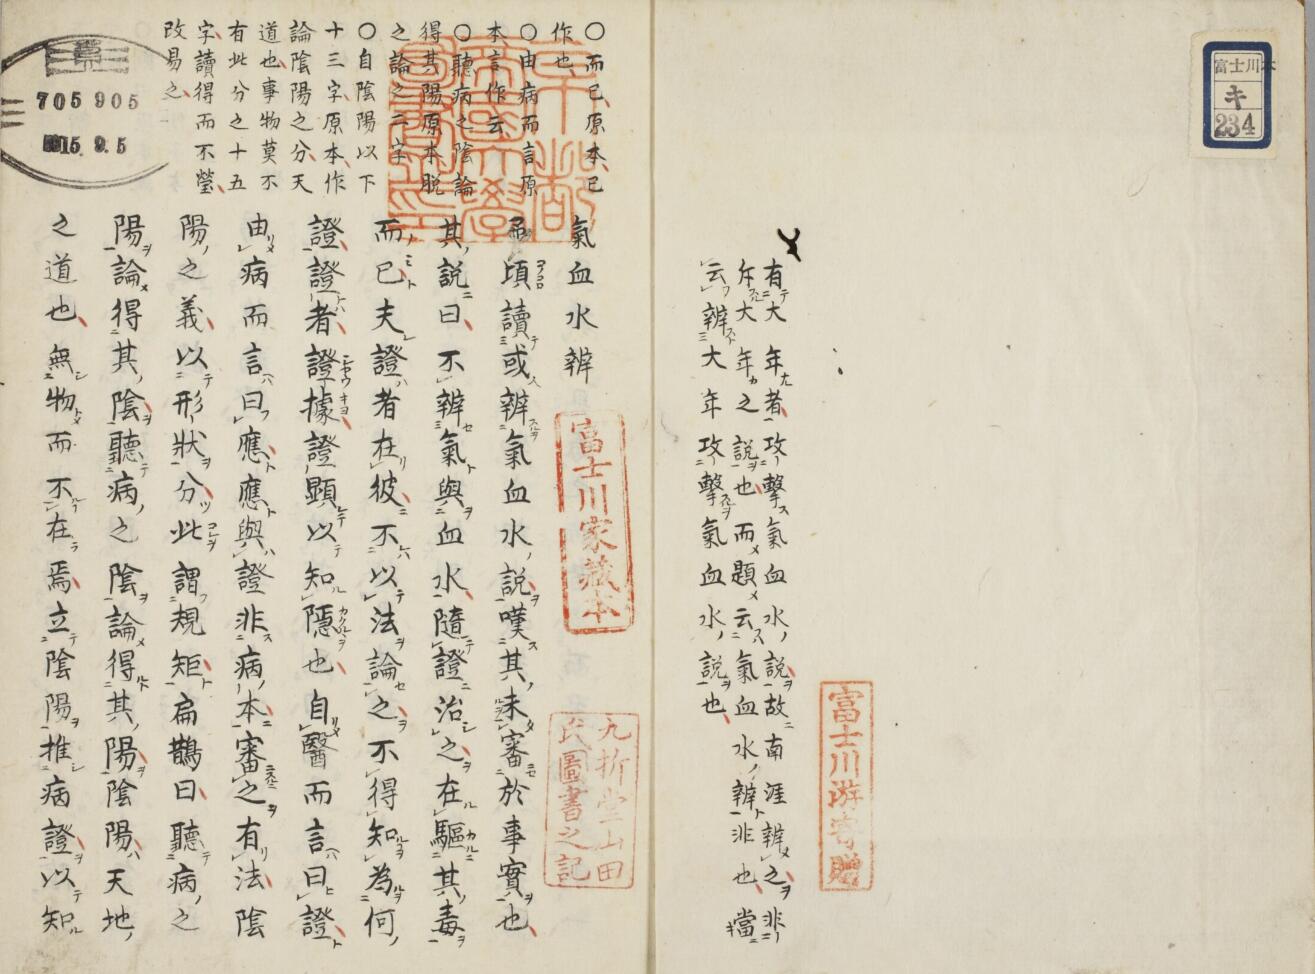 富士川本
キ
234
有大年者攻擊氣血水説故南涯辨之非
斥大年之説也而題云氣血水辨非也當
云辨大年攻擊氣血水説也
富士川游寄贈
京都帝國大學圖書之印
〇而已原本已
作也
〇由病而言原
本言作云
〇聽病之陰論
得其陽原本脱
之論之二字
〇自陰陽以下
十三字原本作
論陰陽之分天
道也事物莫不
有此分之十五
字讀得而不瑩
改易之
705905
15.9.5
氣血水辨
富士川家藏本
九折堂山田
氏圖書之記
頃讀或辨氣血水説嘆其未審於事實也
其説曰不辨氣與血水隨證治之在驅其毒
而已夫證者在彼不以法論之不得知為何
證證者證據證顯以知隱也自醫而言曰證
由病而言曰應應與證非病本審之有法陰
陽之義以形狀分此謂規矩扁鵲曰聽病之
陽論得其陰聽病之陰論得其陽陰陽天地
之道也無物而不在焉立陰陽推病證以知